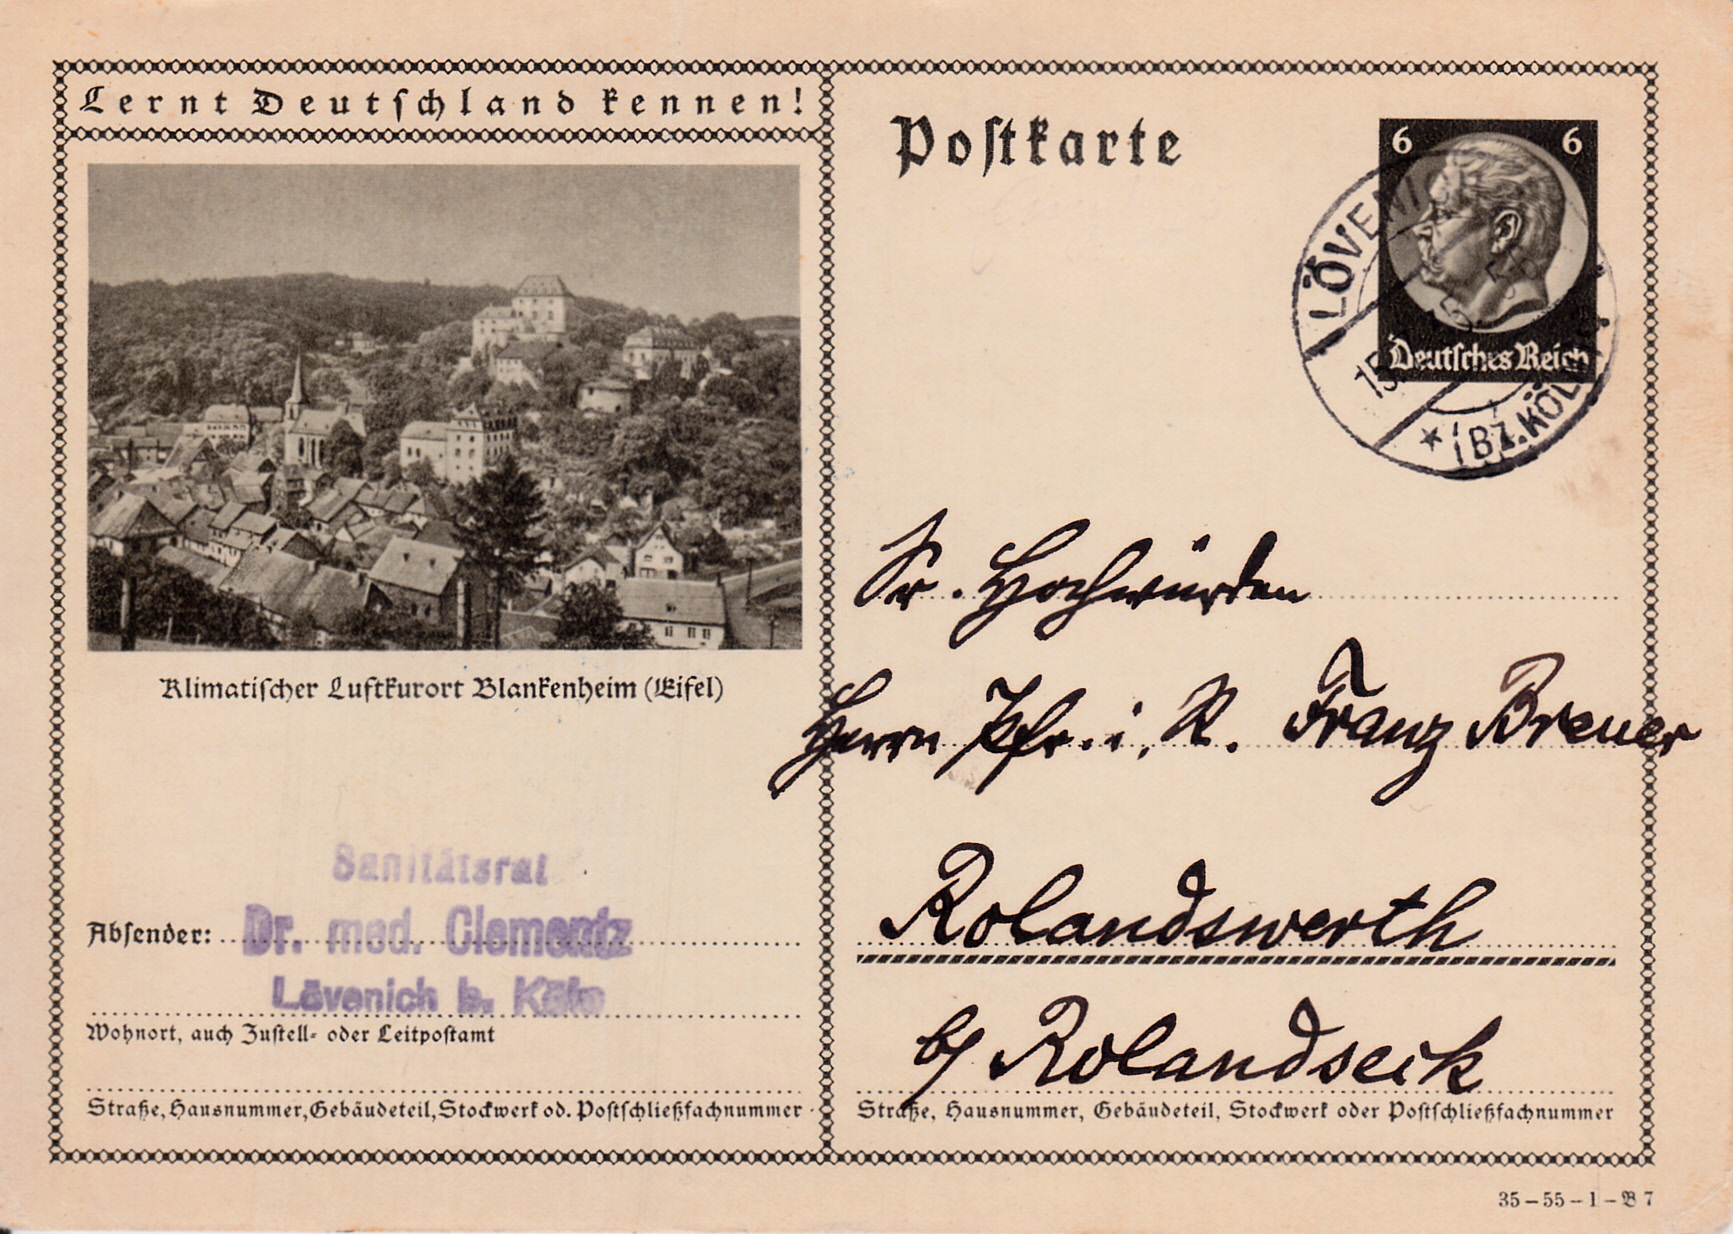 Lernt Deutschland kennen!
Klimatischer Luftkurort Blankenheim (Eifel)
Sanitätsrat
Absender: Dr. med. Clementz
Lövenich b. Köln
Wohnort, auch Zustell- oder Leitpostamt
Straße, Hausnummer, Gebäudeteil, Stockwerk od. Postschließfachnummer
Postkarte
6 6
Deutsches Reich
LÖVENICH
15.
* (BZ. KÖLN)
Sr. Hochwürden
Herrn Pfr. i. R. Franz Breuer
Rolandswerth
b/ Rolandseck
Straße, Hausnummer, Gebäudeteil, Stockwerk oder Postschließfachnummer
35–55–1–B 7